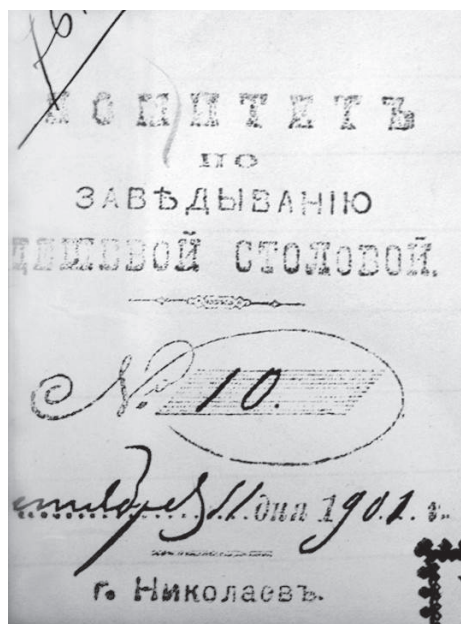 КОМИТЕТЪ
ПО
ЗАВѢДЫВАНІЮ
ДЕШЕВОЙ СТОЛОВОЙ.
№ 10.
11 дня 1901. г.
г. Николаевъ.